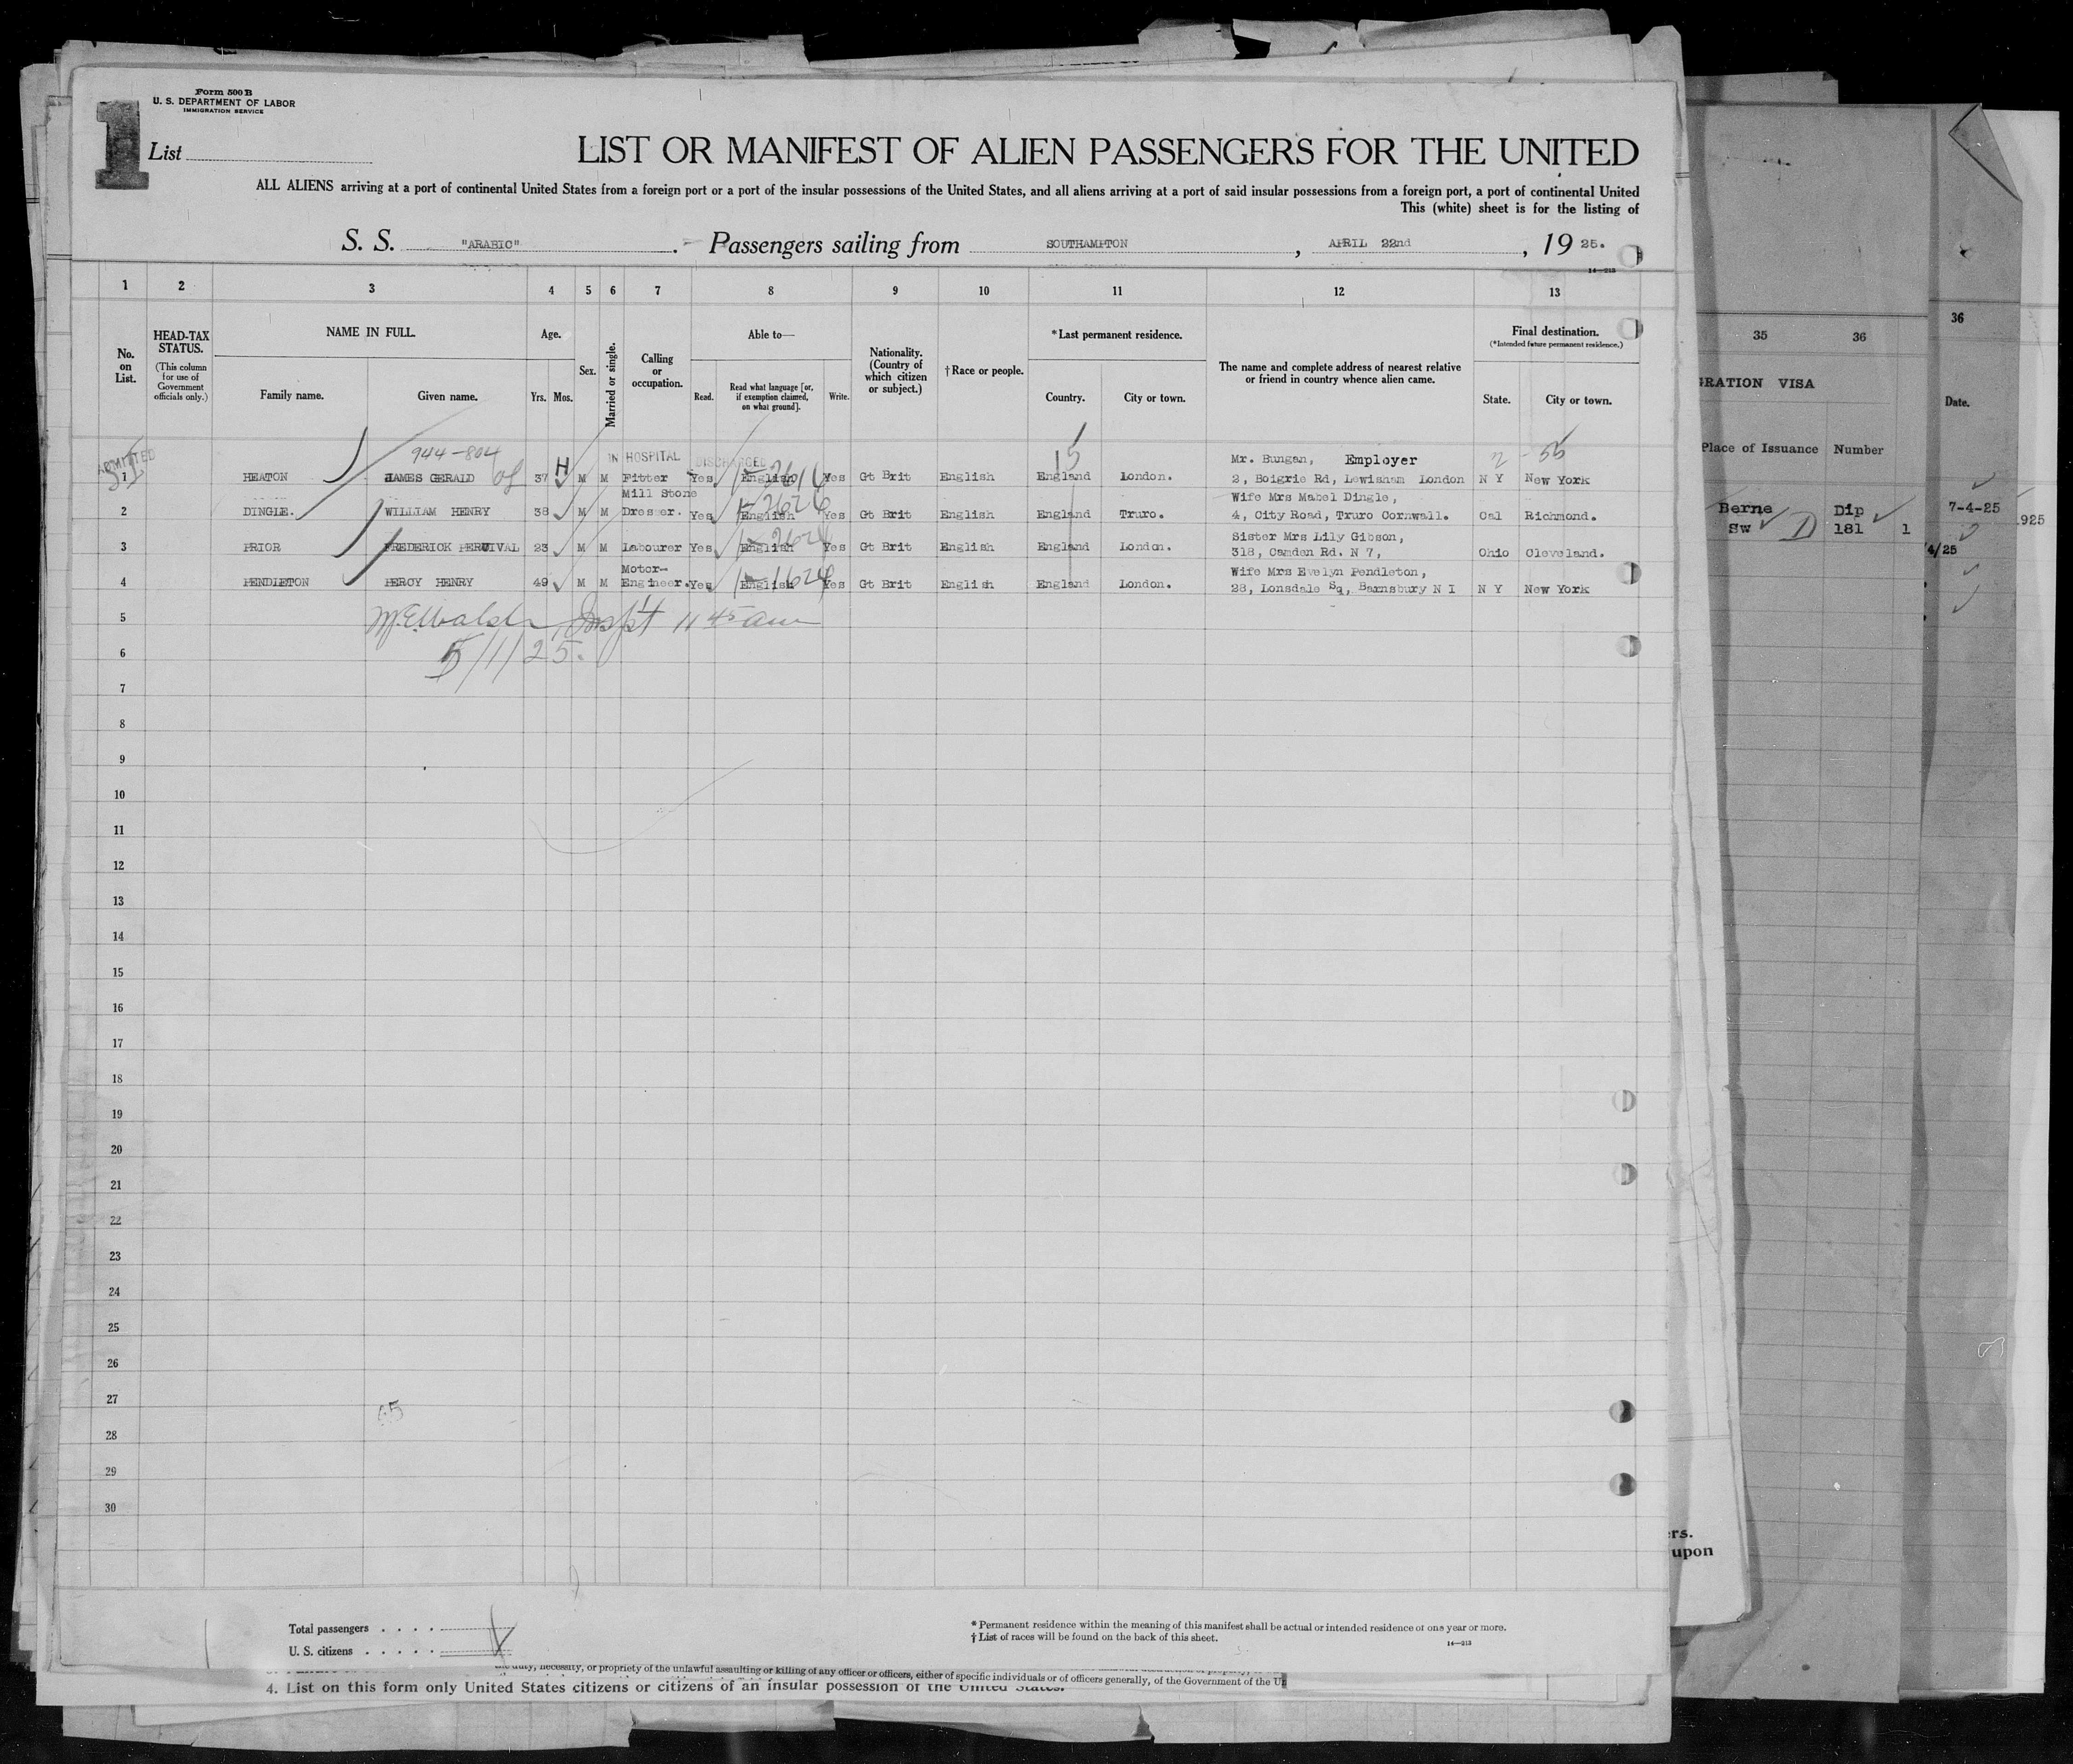 Form 500 B
U. S. DEPARTMENT OF LABOR
IMMIGRATION SERVICE
1
List
LIST OR MANIFEST OF ALIEN PASSENGERS FOR THE UNITED
ALL ALIENS arriving at a port of continental United States from a foreign port or a port of the insular possessions of the United States, and all aliens arriving at a port of said insular possessions from a foreign port, a port of continental United
This (white) sheet is for the listing of
S. S. "ARABIC". Passengers sailing from SOUTHAMPTON, APRIL 22nd, 19 25.
14—213
1 2 3 4 5 6 7 8 9 10 11 12 13
No. on List.
HEAD-TAX STATUS.
(This column for use of Government officials only.)
NAME IN FULL.
Family name. Given name.
Age.
Yrs. Mos.
Sex.
Married or single.
Calling or occupation.
Able to—
Read. Read what language [or, if exemption claimed, on what ground]. Write.
Nationality. (Country of which citizen or subject.)
† Race or people.
* Last permanent residence.
Country. City or town.
The name and complete address of nearest relative or friend in country whence alien came.
Final destination.
(*Intended future permanent residence.)
State. City or town.
ADMITTED
944-804
IN HOSPITAL DISCHARGED
15
2 - 55
Mr. Bungan, Employer
1 HEATON JAMES GERALD 37 H M M Fitter Yes English Yes Gt Brit English England London. 2, Boigrie Rd, Lewisham London N Y New York
Mill Stone Wife Mrs Mabel Dingle,
2 DINGLE. WILLIAM HENRY 38 M M Dresser. Yes English Yes Gt Brit English England Truro. 4, City Road, Truro Cornwall. Cal Richmond.
Sister Mrs Lily Gibson,
3 PRIOR FREDERICK PERCIVAL 23 M M Labourer Yes English Yes Gt Brit English England London. 318, Camden Rd. N 7, Ohio Cleveland.
Motor- Wife Mrs Evelyn Pendleton,
4 PENDLETON PERCY HENRY 49 M M Engineer. Yes English Yes Gt Brit English England London. 28, Lonsdale Sq, Barnsbury N I N Y New York
5
11 45 am
6 5/1/25.
7
8
9
10
11
12
13
14
15
16
17
18
19
20
21
22
23
24
25
26
27
28
29
30
Total passengers . . . .
U. S. citizens . . . . .
* Permanent residence within the meaning of this manifest shall be actual or intended residence of one year or more.
† List of races will be found on the back of this sheet.
14—213
duty, necessity, or propriety of the unlawful assaulting or killing of any officer or officers, either of specific individuals or of officers generally, of the Government of the
4. List on this form only United States citizens or citizens of an insular possession of the United States.
35 36
RATION VISA
Place of Issuance Number
Berne Dip
Sw 181 1
36
Date.
7-4-25
925
4/25
ers.
upon